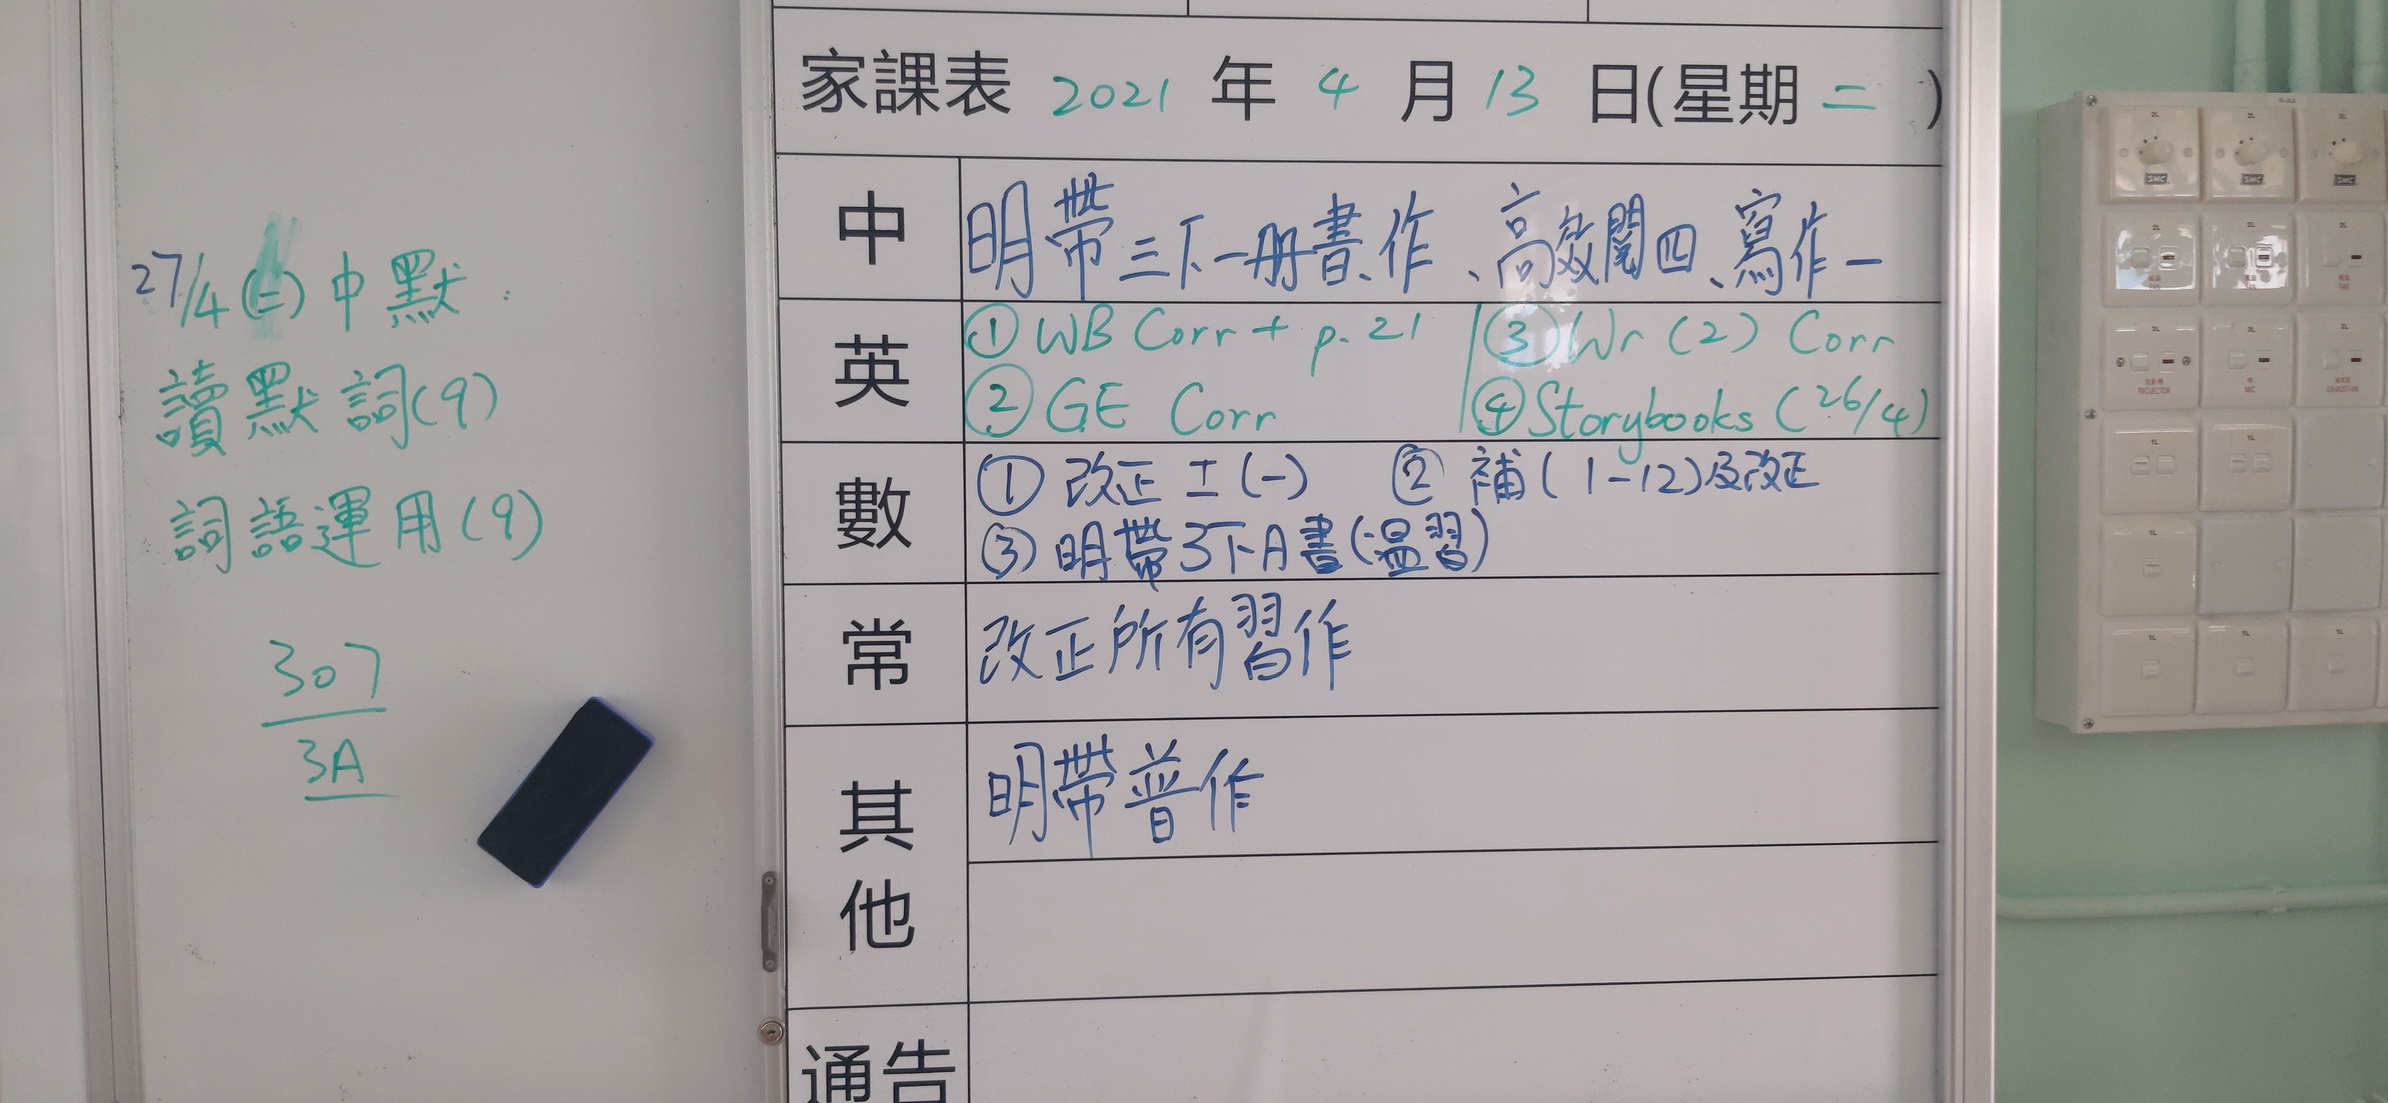 27/4(二)中默:
讀默詞(9)
詞語運用(9)
307
3A
家課表 2021 年 4 月 13 日(星期二)
中 明帶三下一冊書、作、高效閱四、寫作一
英 ① WB Corr + p. 21 ③ Wr (2) Corr
② GE Corr ④ Storybooks (26/4)
數 ① 改正 工(一) ② 補(1-12)及改正
③ 明帶3下A書(溫習)
常 改正所有習作
其他 明帶普作
通告
2L 2L 2L
SMC SMC SMC
2L 2L 2L
FAN FAN FAN
2L 2L 2L
PROJECTOR MIC EXHAUST FAN
1L 1L
1L
1L 1L 1L